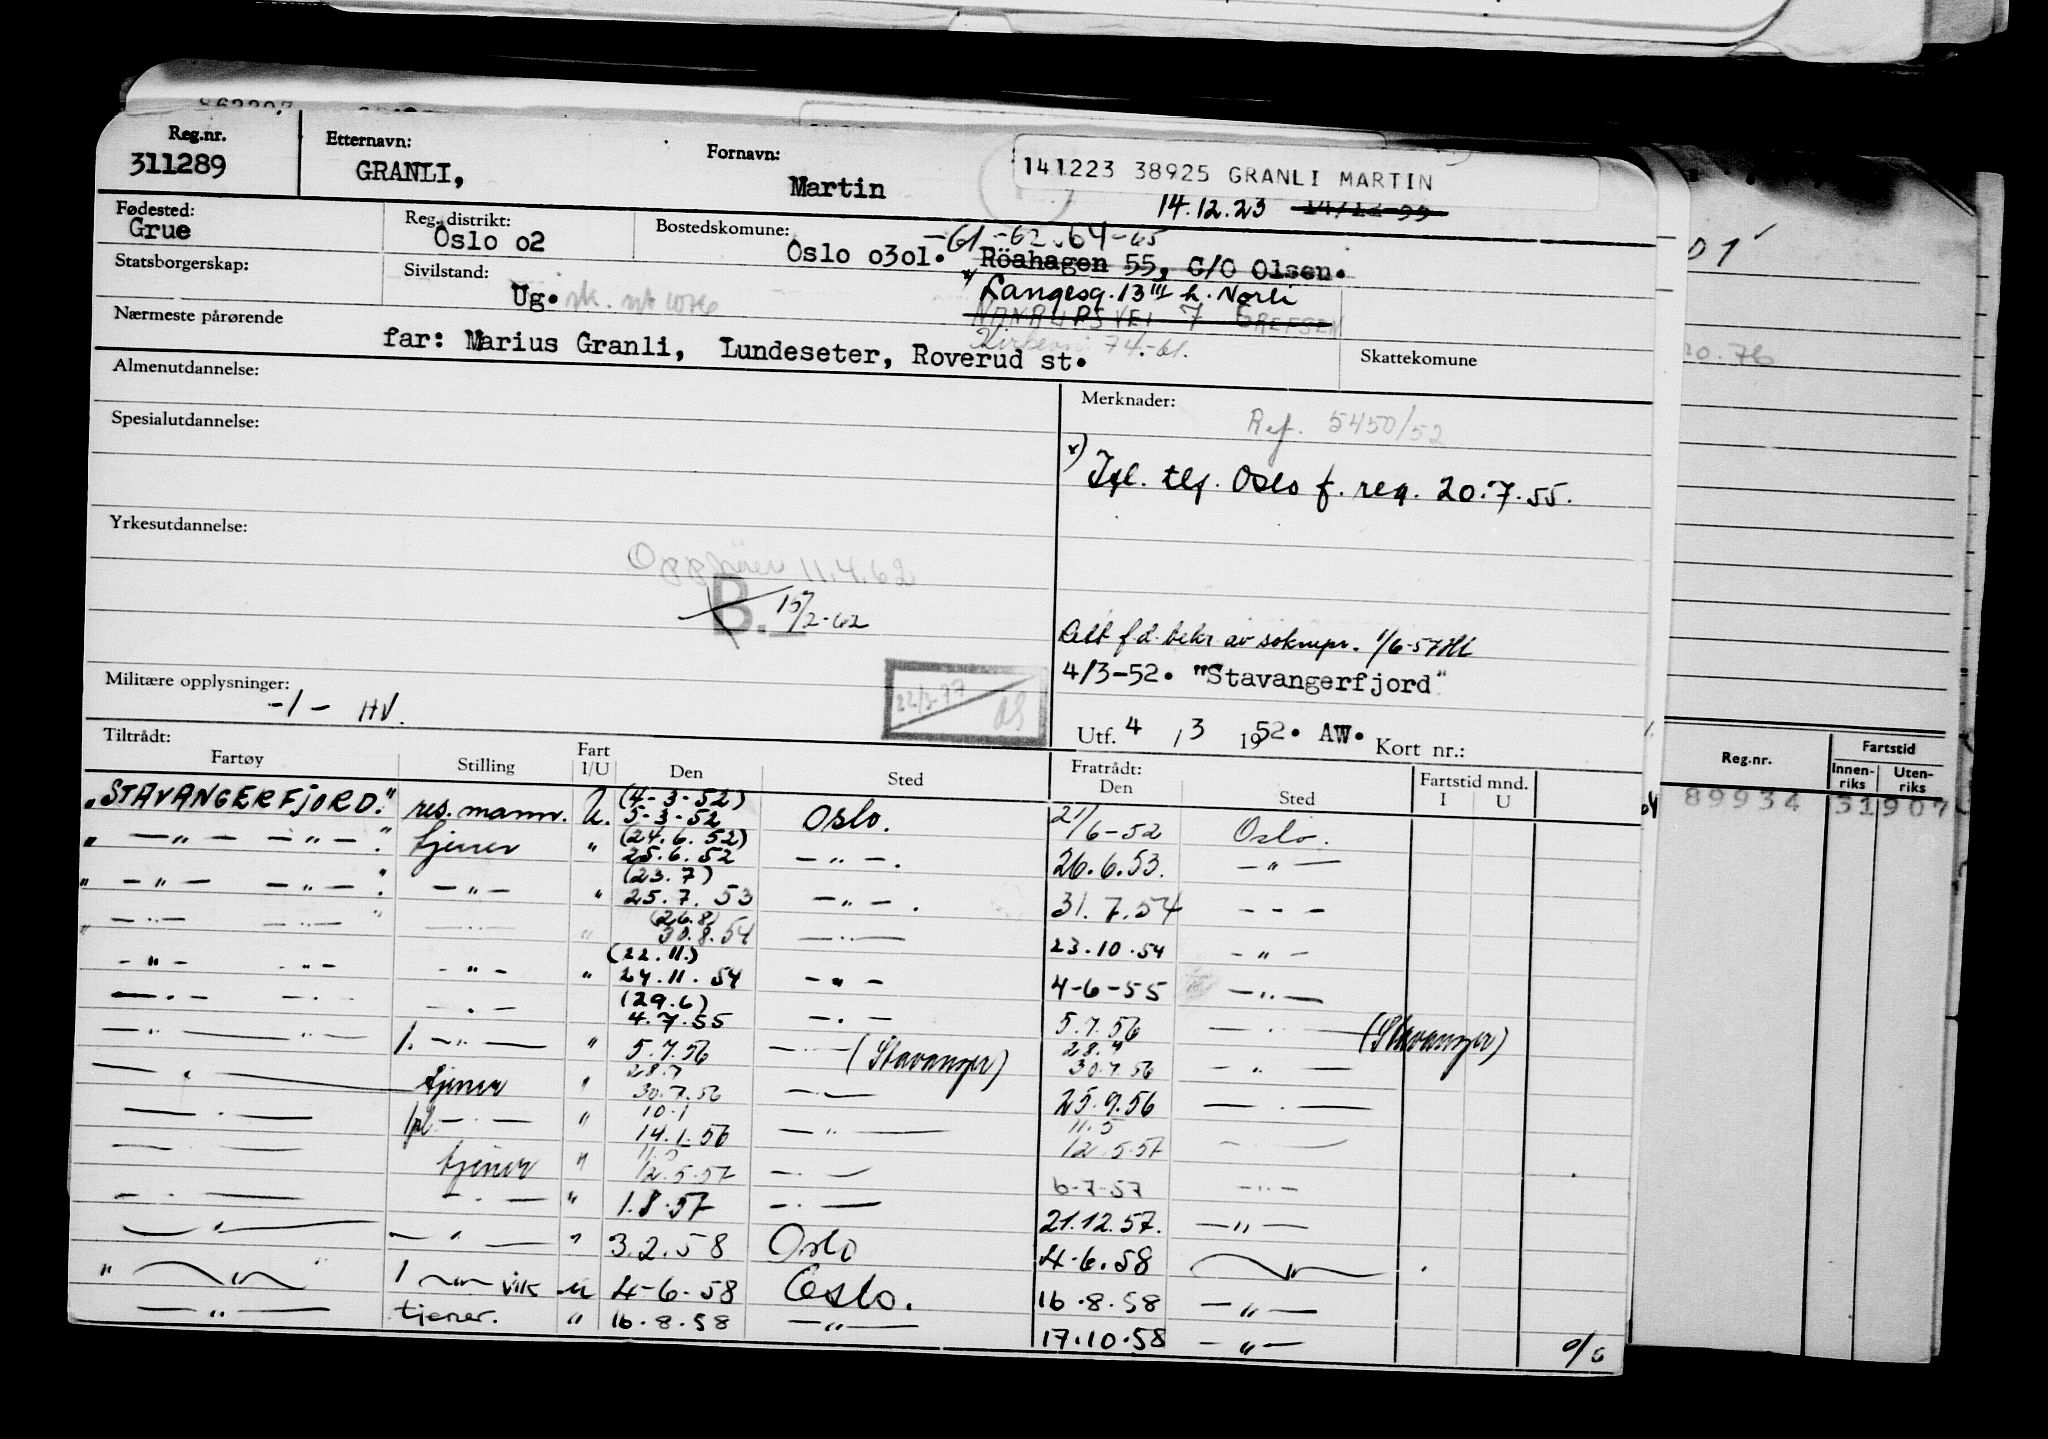 Reg.nr. Etternavn: Fornavn:
311289 GRANLI, Martin
141223 38925 GRANLI MARTIN
14.12.23
Fødested: Reg. distrikt: Bostedskomune: -61-62.64-65
Grue Oslo o2 Oslo o3ol. Röahagen 55, C/O Olsen.
Statsborgerskap: Sivilstand: Ug.
x Langesg. 13 III h. Norli
7 GREFSEN
74.-61.
Nærmeste pårørende far: Marius Granli, Lundeseter, Roverud st.
Skattekomune
Almenutdannelse:
Merknader:
Ref. 5450/52
Spesialutdannelse:
x) Ifl. tlf. Oslo f. reg. 20.7.55.
Yrkesutdannelse:
Opphører 11.4.62
B. 15/2-62
Att f.d. bekr av soknepr. 1/6-57
4/3-52. "Stavangerfjord"
Militære opplysninger:
-1- HV.
22/3-77
Utf. 4 / 3 1952. AW. Kort nr.:
Tiltrådt: Fratrådt:
Fartøy Stilling Fart I/U Den Sted Den Sted Fartstid mnd. I U
"STAVANGERFJORD." res. mann. U. (4-3-52) 5-3-52 Oslo. 21/6-52 Oslo.
" — " — — " — ". tjener " (24.6.52) 25.6.52 — " —. 26.6.53. — " —
" — " — — " — ". — " — " (23.7) 25.7.53 — " —. 31.7.54 — - —
" — " — — " — " — " — " (26.8) 30.8.54 — " — 23.10.54 — " —
— " — — " — — " — " (22.11.) 24.11.54 — " — 4-6-55 — " —
— " — — " — — " — (29.6) 4.7.55 — " — 5.7.56 — " — (Stavanger)
— " — — " — 1. — " — " 5.7.56 — " — (Stavanger) 28.7 30.7.56 — " —
— " — tjener " 28.7 30.7.56 — " — 25.9.56 — " —
— " — — " — " 10.1 14.1.56 — " — 11.5 12.5.57 — " —
— " — tjener " 12.5.57 — " — 6-7-57 — " —
— " — — " — " 1.8.57 — " — 21.12.57. — " —
— " — — " — " 3.2.58 Oslo 4-6.58 — " —
" — " — 1 — " — vik u 4-6-58 Oslo. 16.8.58 — " —
— " — tjener. " 16.8.58 — " — 17.10.58 — " —
o/s
Reg.nr. Fartstid
Innenriks Utenriks
89934 31907